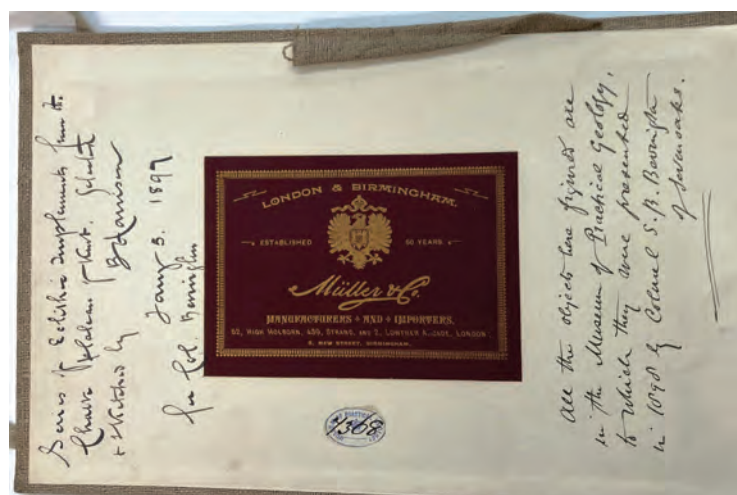 Series of Eolithic Implements from the
Chalk Plateau of Kent. Selected
& sketched by BHarrison
Jany 3. 1897
for Col. Bevington
LONDON & BIRMINGHAM.
ESTABLISHED 50 YEARS.
Müller & Co.
MANUFACTURERS AND IMPORTERS.
62, HIGH HOLBORN, 439, STRAND, AND 2, LOWTHER ARCADE, LONDON.
NEW STREET, BIRMINGHAM.
1/368
All the objects here figured are
in the Museum of Practical Geology,
to which they were presented
in 1898 by Colonel S. B. Bevington
of Sevenoaks.